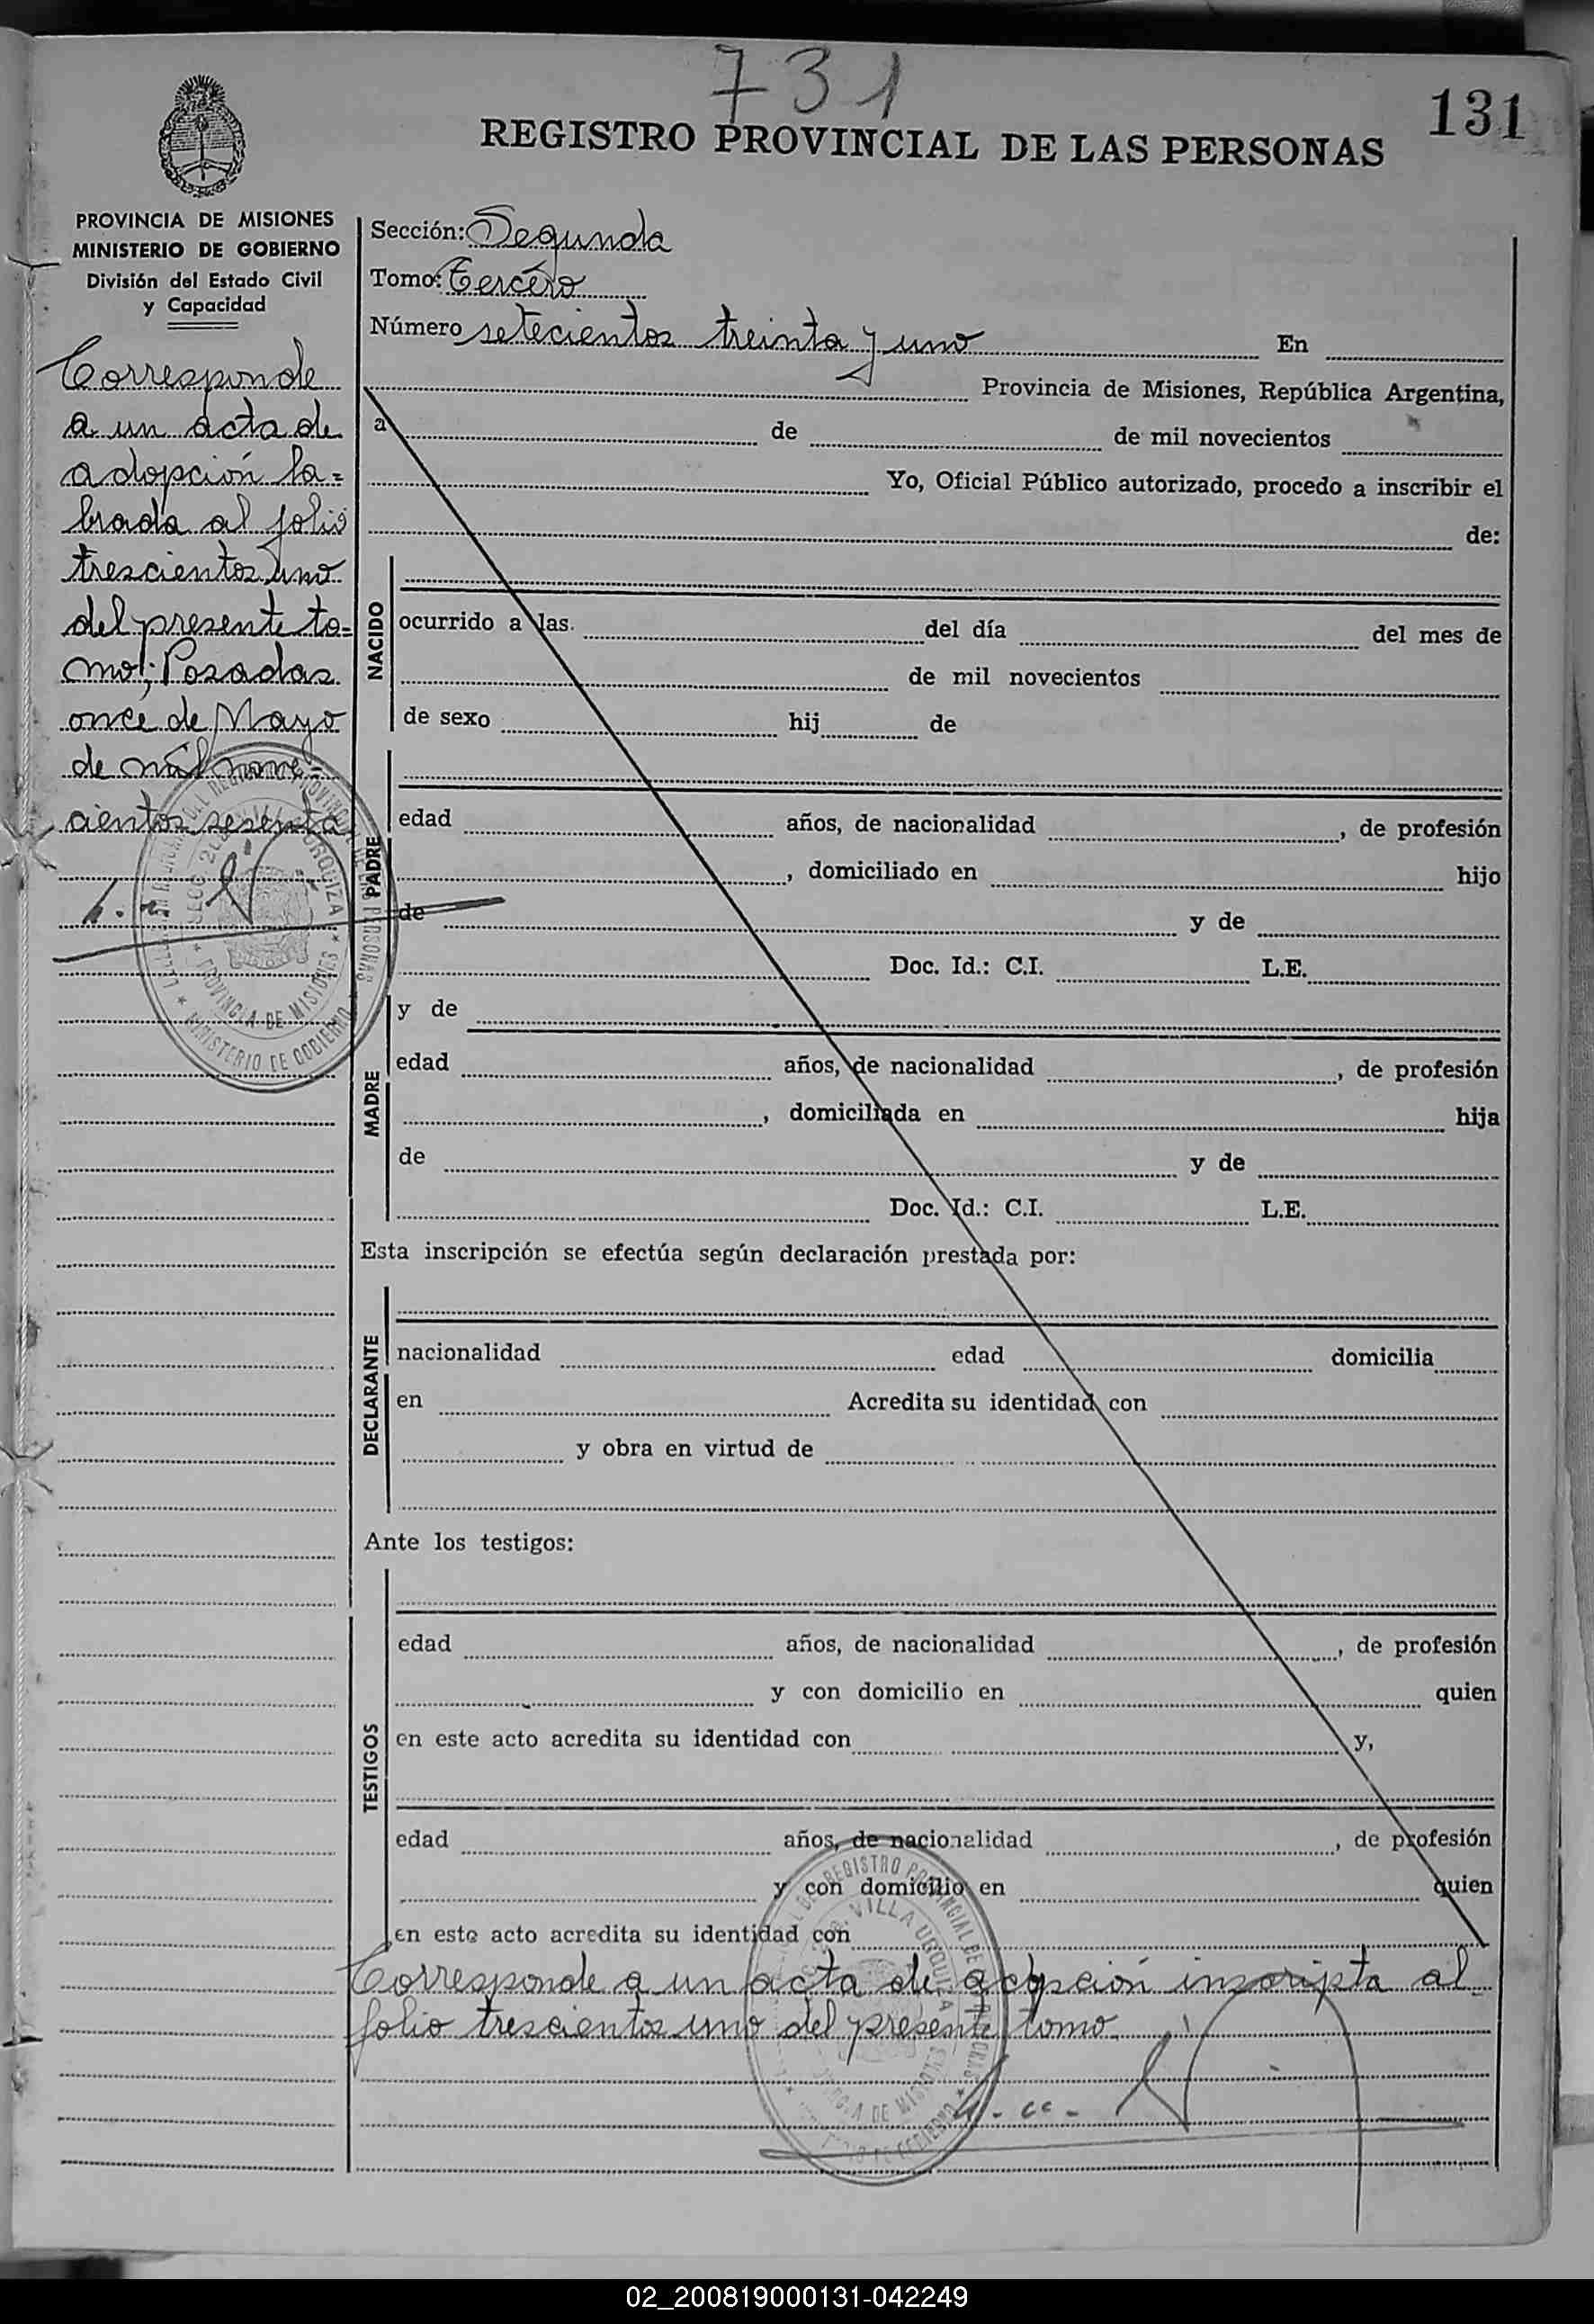 731
131
REGISTRO PROVINCIAL DE LAS PERSONAS
PROVINCIA DE MISIONES
MINISTERIO DE GOBIERNO
División del Estado Civil
y Capacidad
Corresponde
a un acta de
adopción la=
brada al folio
trescientos uno
del presente to=
mo; Posadas
once de Mayo
de mil nove-
cientos sesenta
Sección: Segunda
Tomo: tercero
Número setecientos treinta y uno En
Provincia de Misiones, República Argentina,
a de de mil novecientos
Yo, Oficial Público autorizado, procedo a inscribir el
de:
NACIDO
ocurrido a las. del día del mes de
de mil novecientos
de sexo hij de
PADRE
edad años, de nacionalidad , de profesión
, domiciliado en hijo
de y de
Doc. Id.: C.I. L.E.
MADRE
y de
edad años, de nacionalidad , de profesión
, domiciliada en hija
de y de
Doc. Id.: C.I. L.E.
Esta inscripción se efectúa según declaración prestada por:
DECLARANTE
nacionalidad edad domicilia
en Acredita su identidad con
y obra en virtud de
Ante los testigos:
TESTIGOS
edad años, de nacionalidad , de profesión
y con domicilio en quien
en este acto acredita su identidad con y,
edad años, de nacionalidad , de profesión
y con domicilio en quien
en este acto acredita su identidad con
Corresponde a un acta de adopción inscripta al
folio trescientos uno del presente tomo.
REGISTRO PROVINCIAL DE LAS PERSONAS
VILLA URQUIZA
PROVINCIA DE MISIONES
MINISTERIO DE GOBIERNO
02_200819000131-042249